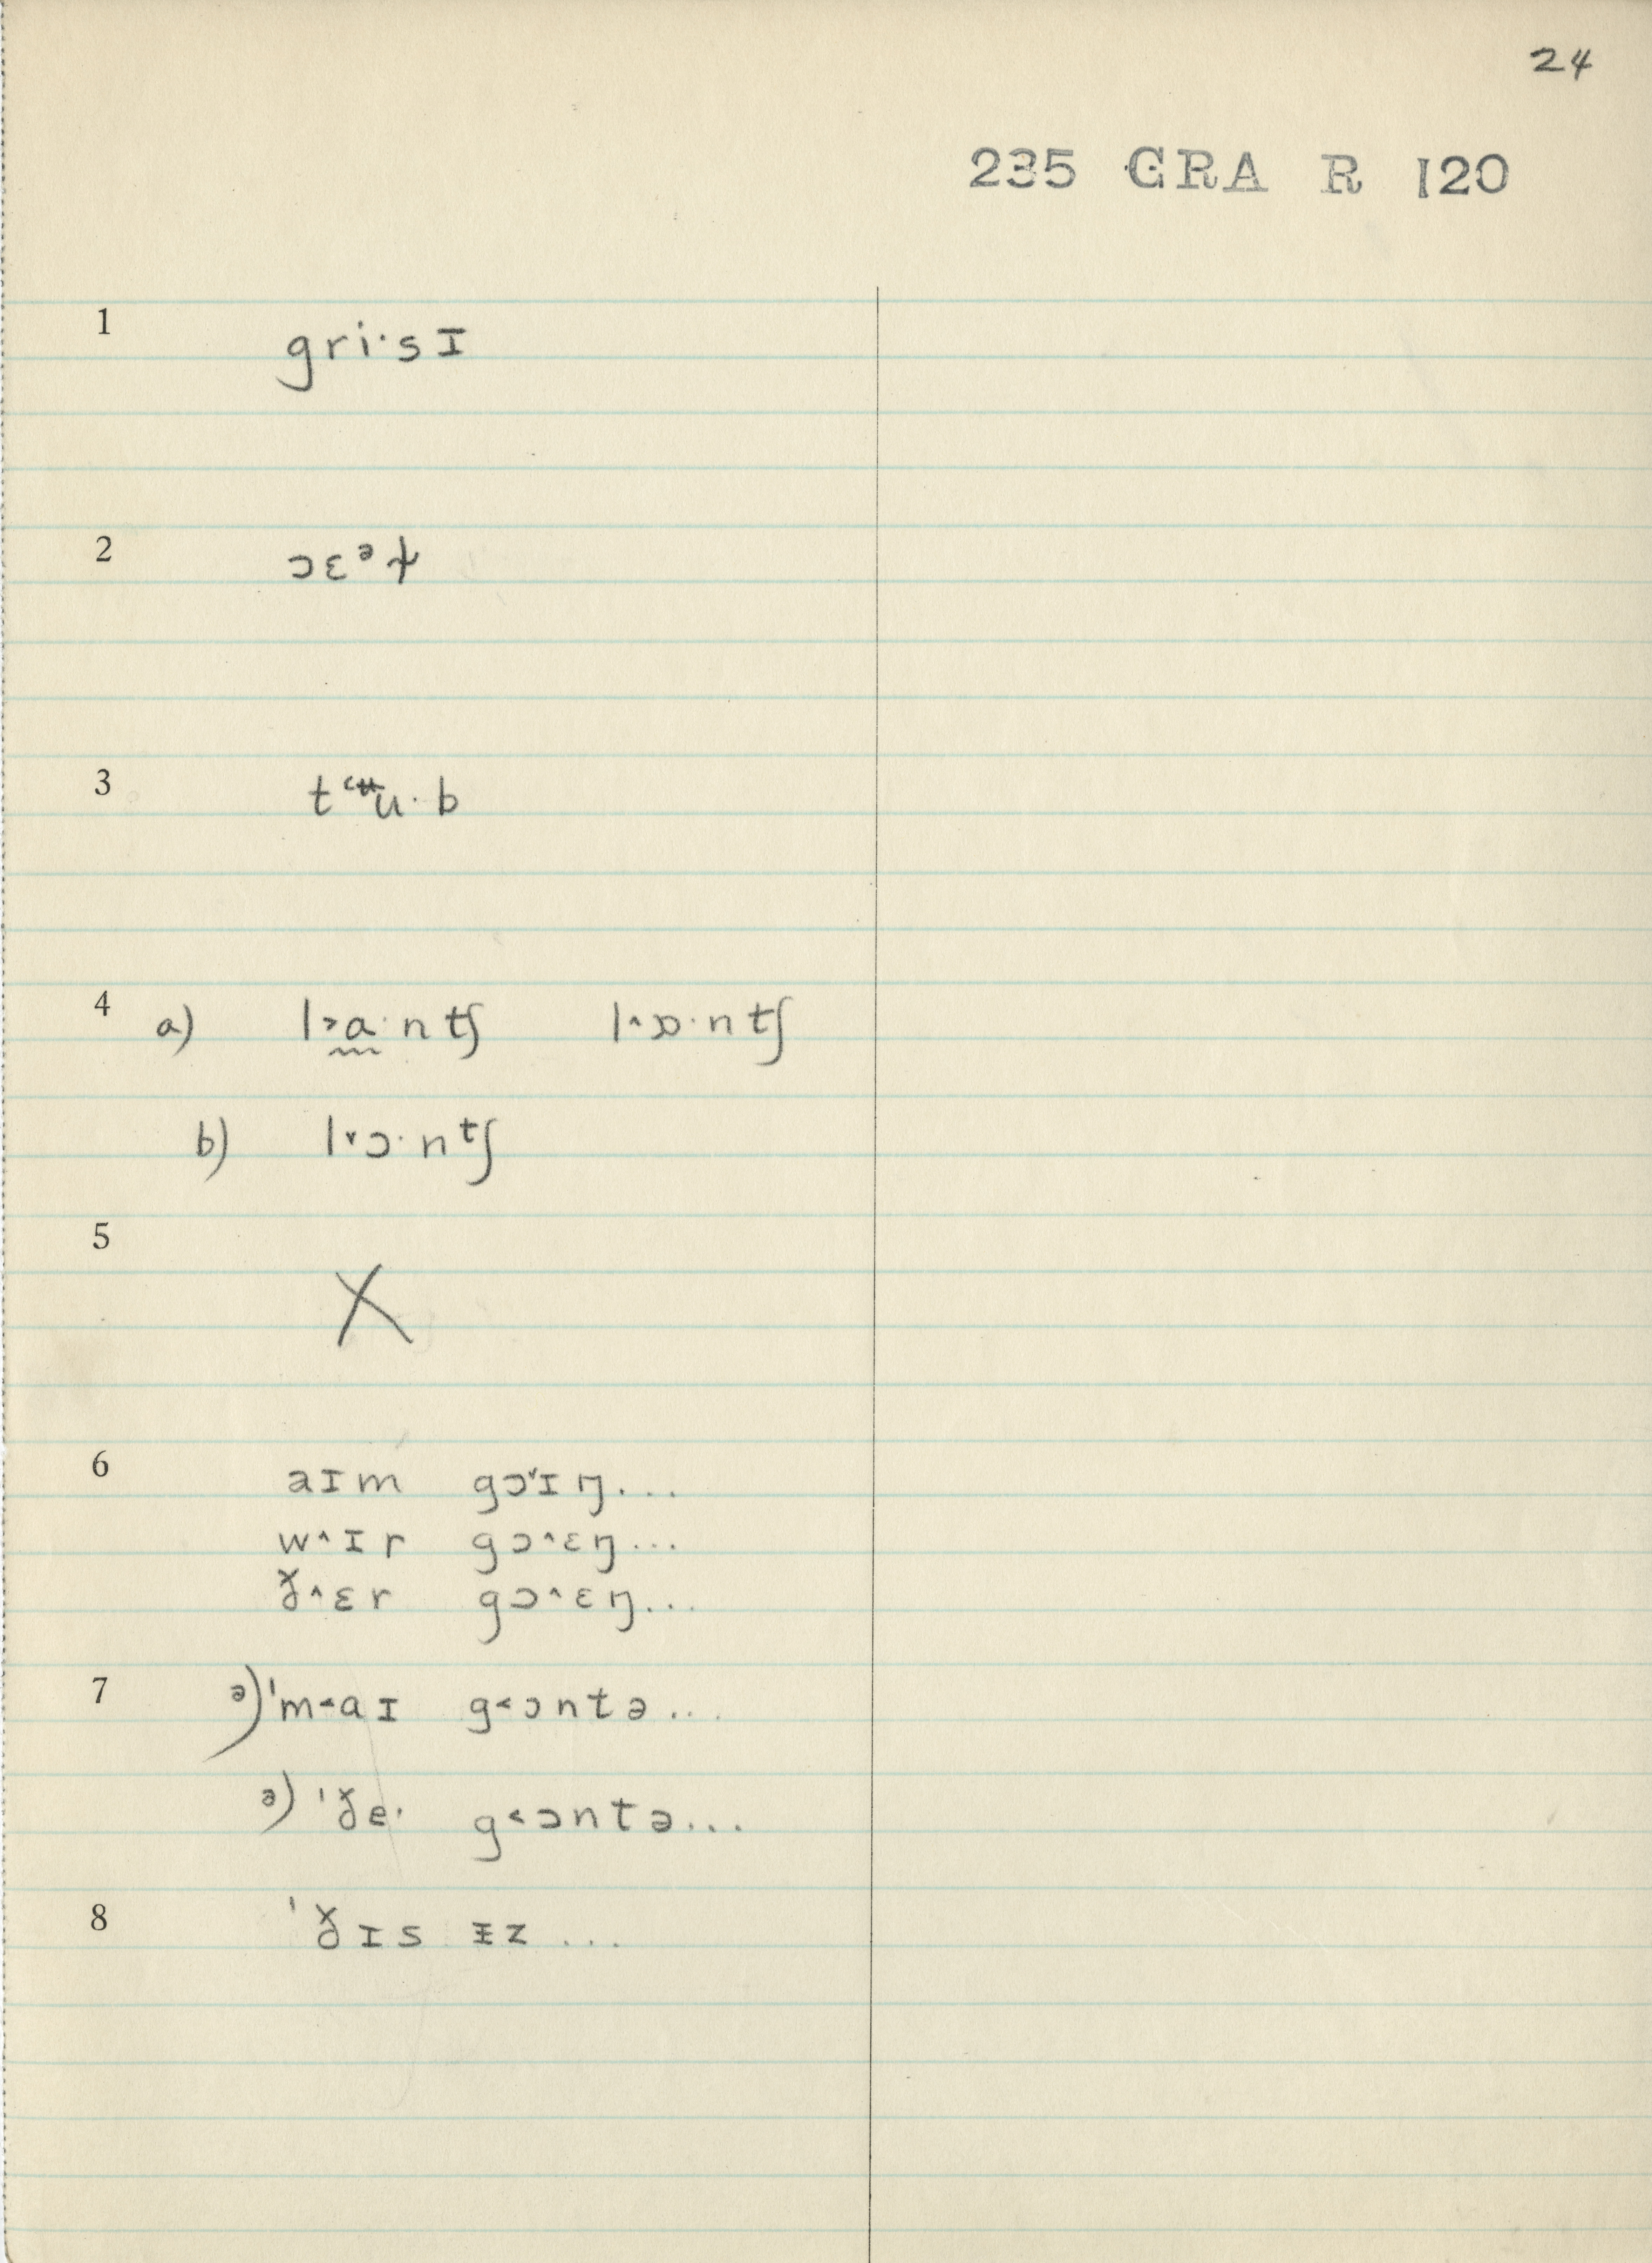 24
235 GRA R 120
1 gri·sɪ
2 ɔɛᵊɫ
3 t
4 a) l˃a·ntʃ l˄ɒ·ntʃ
b) l˅ɔ·nᵗʃ
5 X
6 aɪm gɔ˅ɪŋ...
w˄ɪr gɔ˄ɛŋ...
ɣ˄ɛr gɔ˄ɛŋ...
7 a) 'm˂aɪ g˂ɔntə...
a) 'ɣe· g˂ɔntə...
8 'ɣɪs ᵻz ...